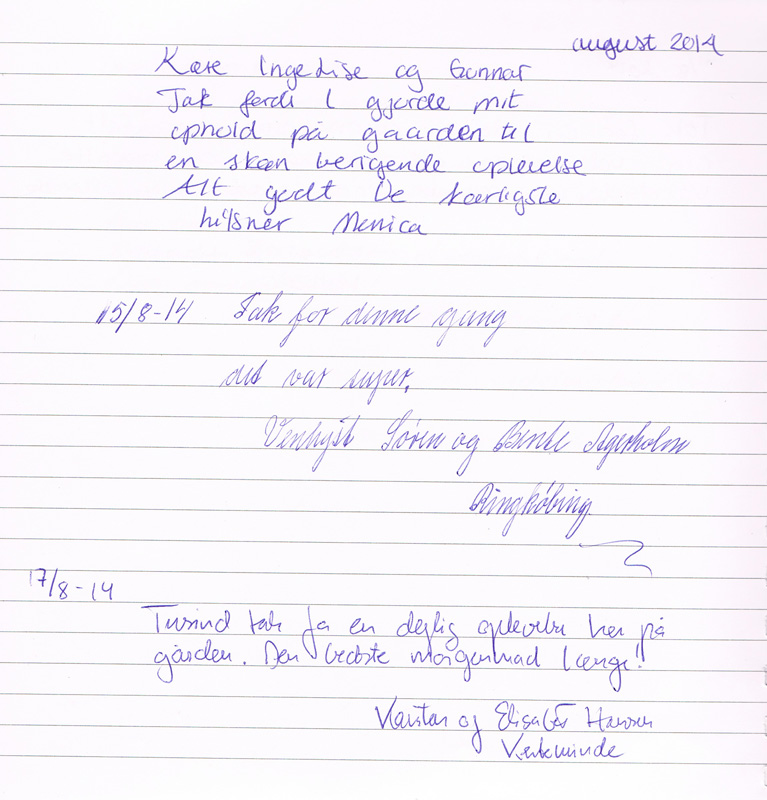 august 2014
Kære Inge Lise og Gunnar
Tak fordi I gjorde mit
ophold på gaarden til
en skøn berigende oplevelse
Alt godt De kærligste
hilsner Monica
15/8-14 Tak for denne gang
det var super.
Venligst Søren og Bente Agerholm
Ringkøbing
17/8-14
Tusind tak for en dejlig oplevelse her på
gården. Den bedste morgenmad længe!
Karsten og Elisabet Hansen
Kerteminde